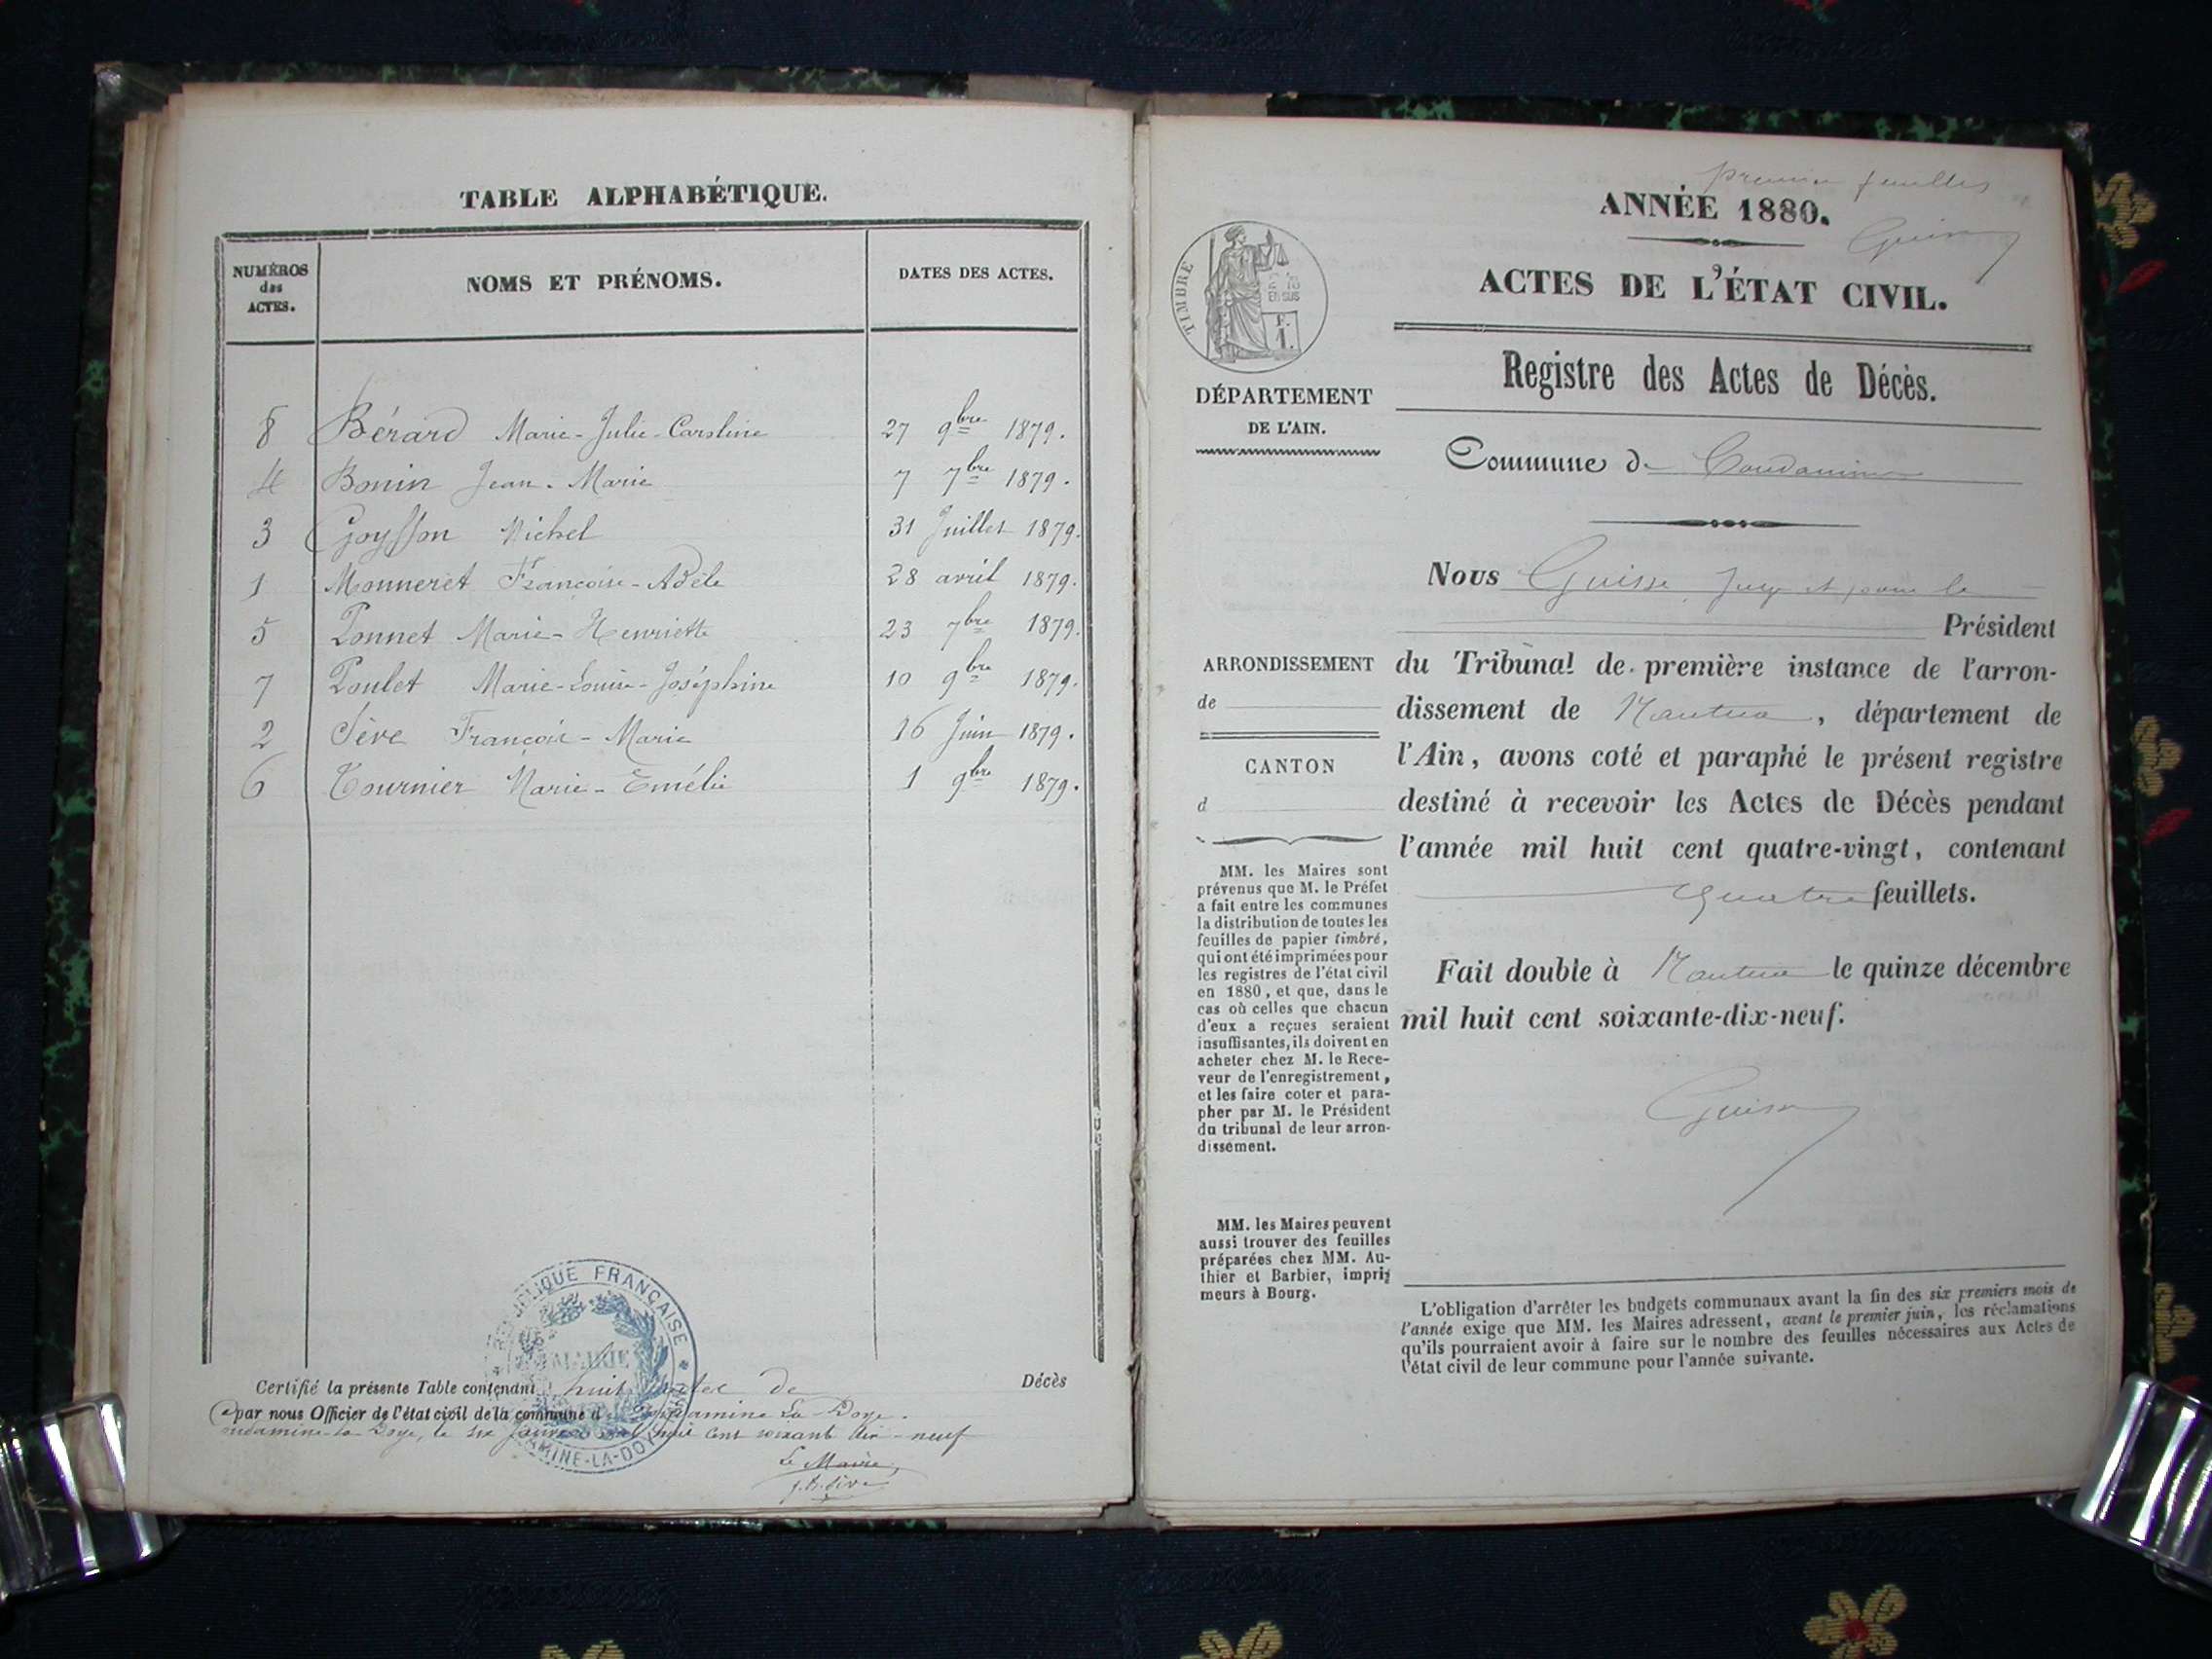 TABLE ALPHABÉTIQUE.
NUMÉROS des ACTES.
NOMS ET PRÉNOMS.
DATES DES ACTES.
8 Bérard Marie-Julie-Caroline 27 9bre 1879.
4 Bonin Jean-Marie 7 7bre 1879.
3 Goysson Michel 31 Juillet 1879.
1 Monneret Françoise-Adèle 28 avril 1879.
5 Ponnet Marie-Henriette 23 7bre 1879.
7 Poulet Marie-Louise-Joséphine 10 9bre 1879.
2 Sève François-Marie 16 Juin 1879.
6 Tournier Marie-Emélie 1 9bre 1879.
RÉPUBLIQUE FRANÇAISE
MAIRIE
Certifié la présente Table contenant huit actes de Décès
par nous Officier de l'état civil de la commune d Condamine La Doye.
Condamine-la Doye, le six Janvier mil huit cent soixante dix-neuf
Le Maire,
J. B. Sève
premier feuillet
ANNÉE 1880.
ACTES DE L'ÉTAT CIVIL.
TIMBRE
2/10 EN SUS
F. 1.
Registre des Actes de Décès.
DÉPARTEMENT
DE L'AIN.
Commune de Condamine
Nous Guisse, Juge et pour le
Président
du Tribunal de première instance de l'arron-
dissement de Nantua, département de
l'Ain, avons coté et paraphé le présent registre
destiné à recevoir les Actes de Décès pendant
l'année mil huit cent quatre-vingt, contenant
quatre feuillets.
Fait double à Nantua le quinze décembre
mil huit cent soixante-dix-neuf.
ARRONDISSEMENT
de
CANTON
d
MM. les Maires sont
prévenus que M. le Préfet
a fait entre les communes
la distribution de toutes les
feuilles de papier timbré,
qui ont été imprimées pour
les registres de l'état civil
en 1880, et que, dans le
cas où celles que chacun
d'eux a reçues seraient
insuffisantes, ils doivent en
acheter chez M. le Rece-
veur de l'enregistrement,
et les faire coter et para-
pher par M. le Président
du tribunal de leur arron-
dissement.
MM. les Maires peuvent
aussi trouver des feuilles
préparées chez MM. Au-
thier et Barbier, impri-
meurs à Bourg.
L'obligation d'arrêter les budgets communaux avant la fin des six premiers mois de
l'année exige que MM. les Maires adressent, avant le premier juin, les réclamations
qu'ils pourraient avoir à faire sur le nombre des feuilles nécessaires aux Actes de
l'état civil de leur commune pour l'année suivante.